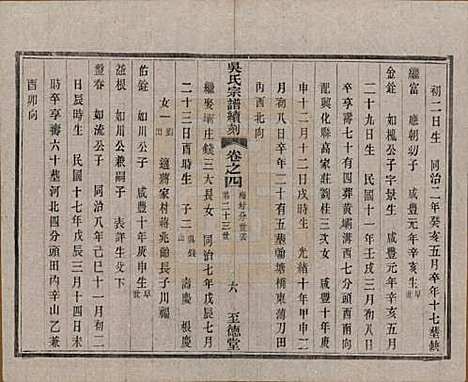 初二日生 同治二年癸亥五月卒年十七葬缺
繼富 應朝幼子 咸豐元年辛亥生早世
金銓 如槐公子字景生 咸豐元年辛亥五月
二十九日生 民國十一年壬戌十二月初八日
卒享壽七十有二葬黃壩溝西七里酉向
配興化縣高家莊劉桂三次女 咸豐十年庚
申十二月十二日戌時生 光緒十年甲申
月初八日卒年二十有五葬翰塘橋東薄刀田
內酉北向
吳氏宗譜續刻 卷之四 梅村分世表 第二十三世 六 至德堂
繼娶壩莊錢三大長女 同治七年戊辰七月
二十三日酉時生 子二 壽慶 根慶
女一 適蔣家村蔣兆餘長子川福
佑銓 如川公子 咸豐十年庚申生早世
益根 如川公兼嗣子 表詳生父下
盤春 如流公子 同治八年己巳十一月初二
日辰時生 民國十七年戊辰三月十四日未
時卒享壽六十葬河北四分頭田內辛山乙兼
酉卯向